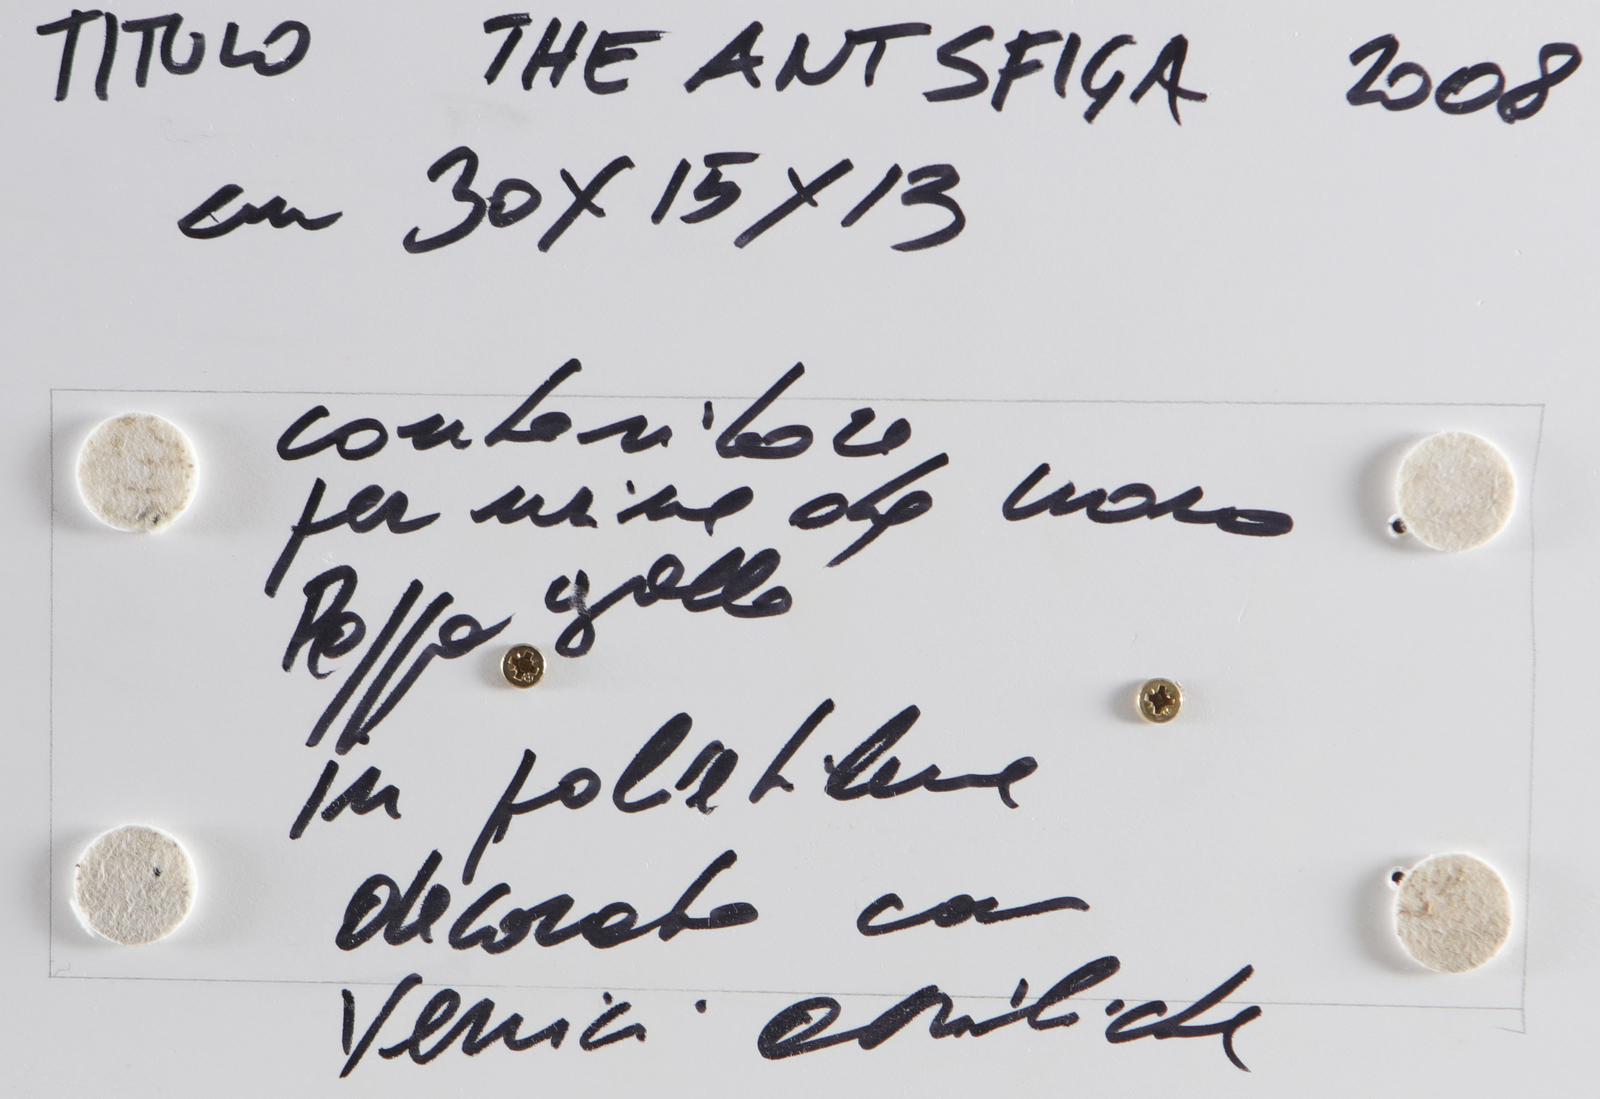 TITULO THE ANTSFIGA 2008
cm 30X15X13
contenitore
per urine di uomo
Roffo gallo
in polietilene
decorato con
vernici acriliche